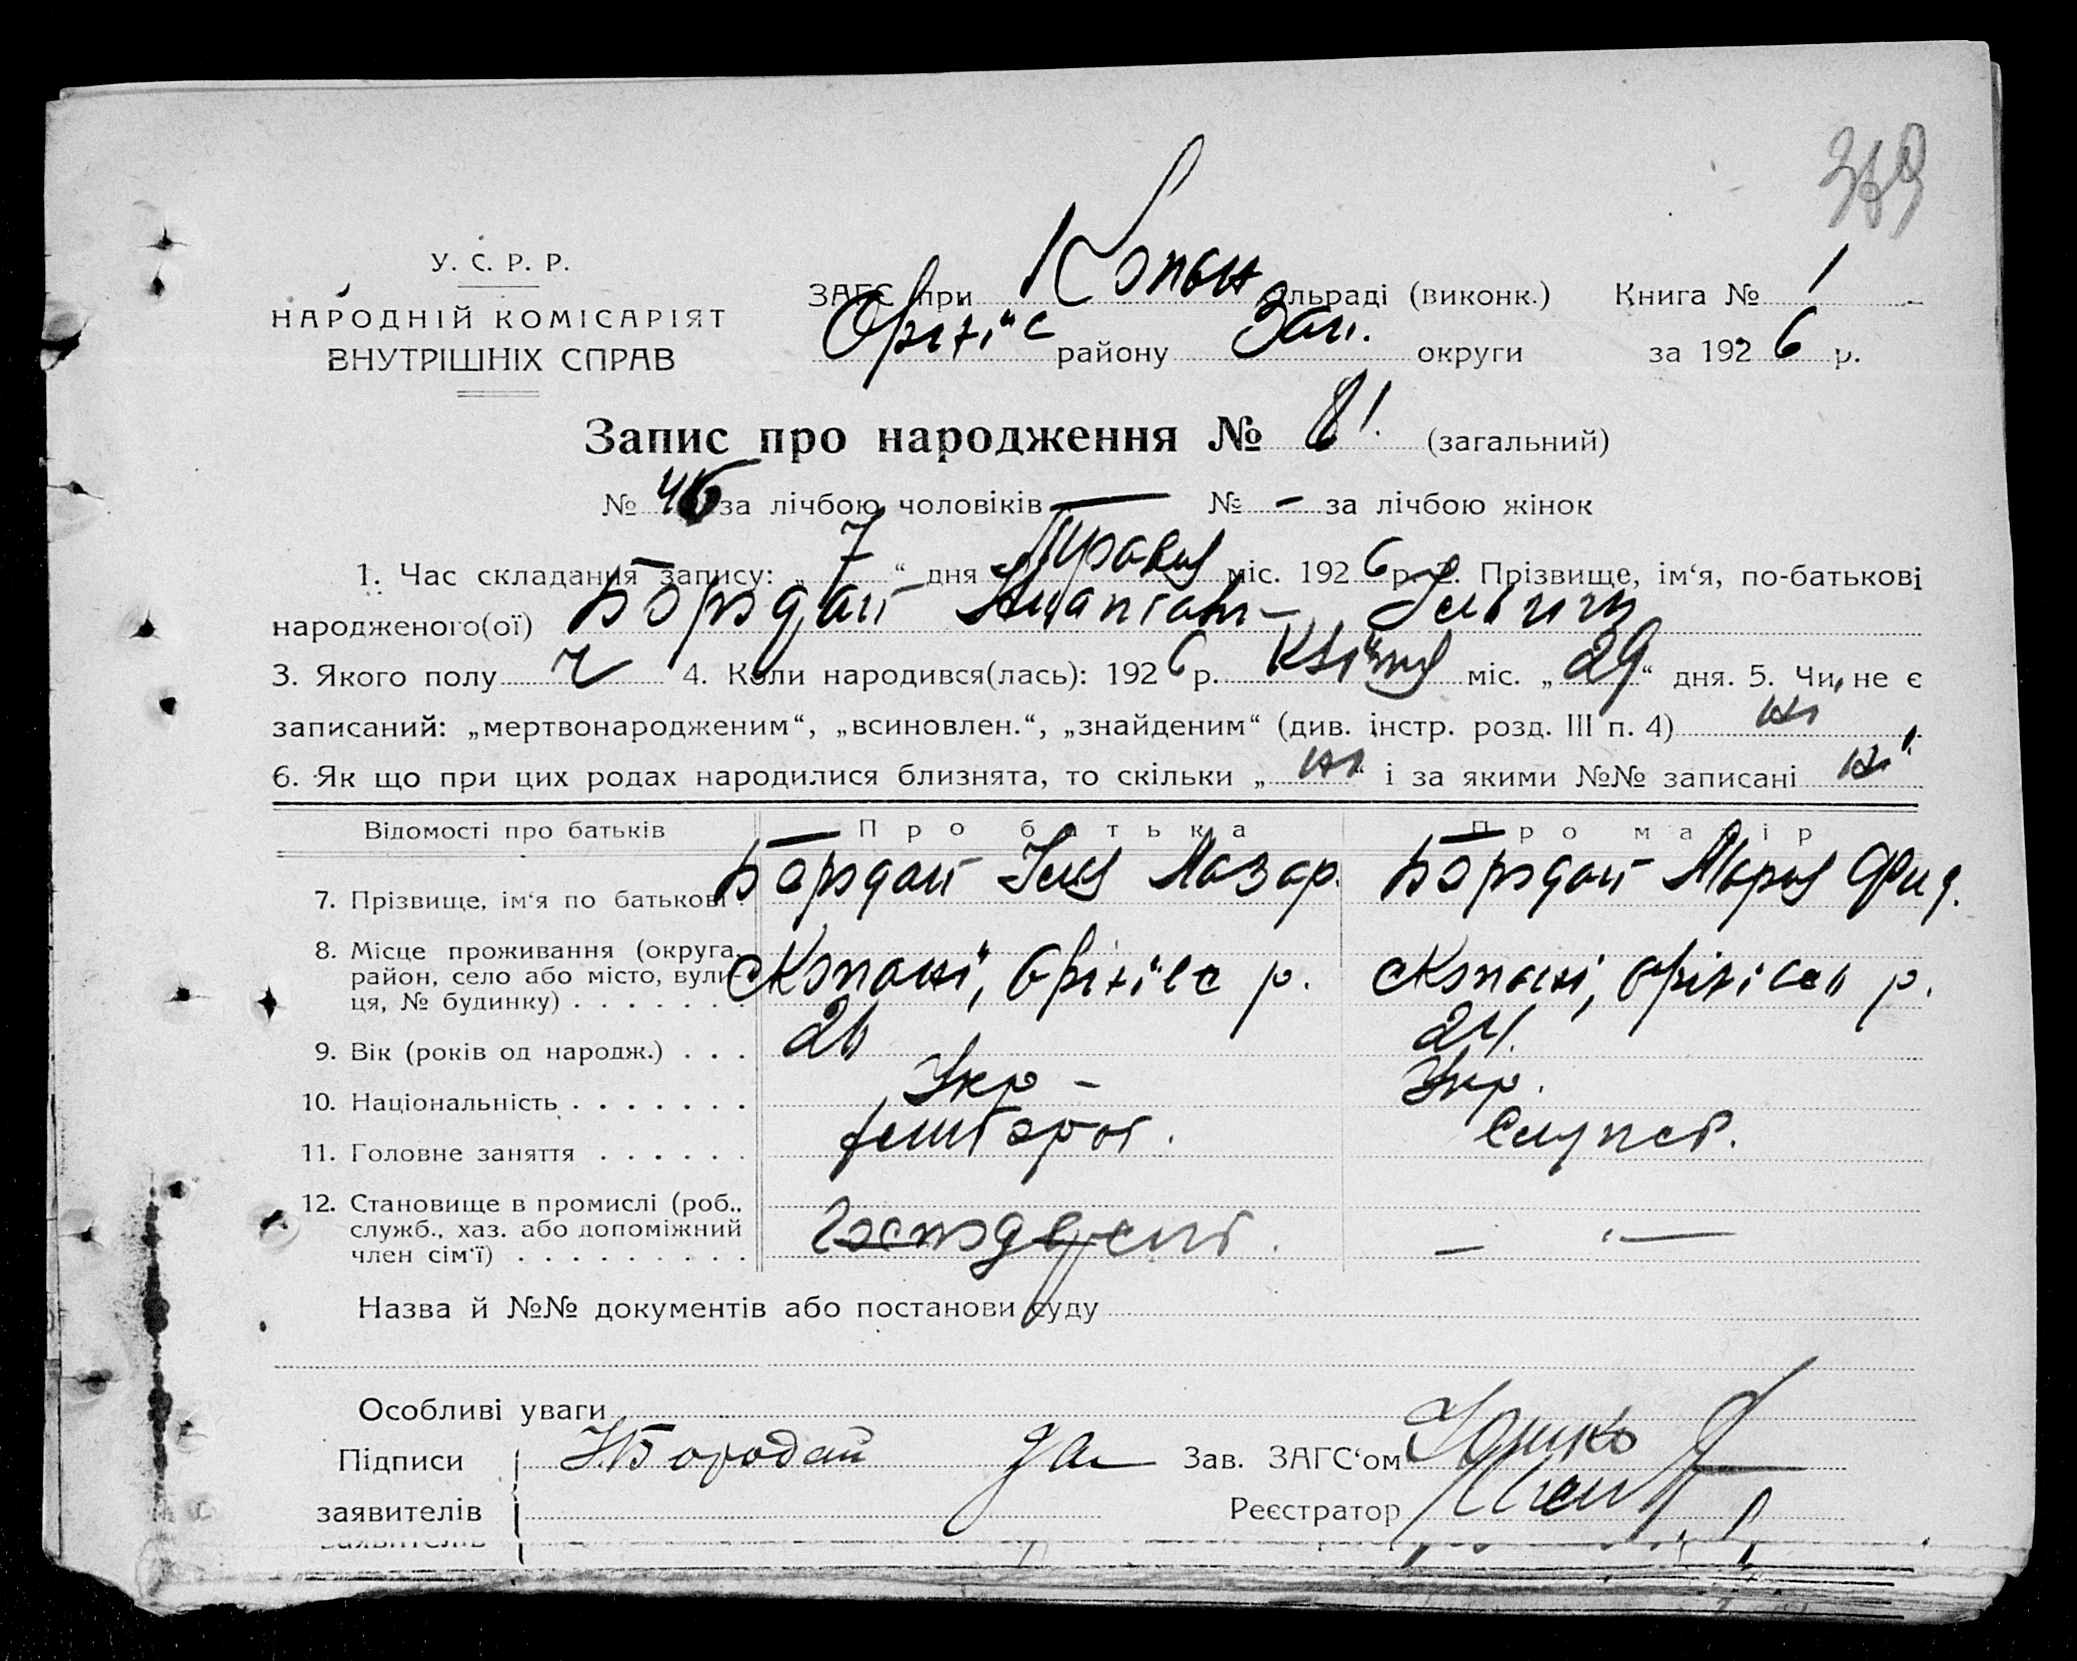 У. С. Р. Р.
НАРОДНІЙ КОМІСАРІЯТ
ВНУТРІШНІХ СПРАВ
ЗАГС при Копан сільраді (виконк.) Книга № 1
Оріхіc району Зап. округи за 1926 р.
Запис про народження № 81. (загальний)
№ 46 за лічбою чоловіків — № - за лічбою жінок
1. Час складання запису: „ 7 “ дня Травня міс. 1926 р. 2. Прізвище, ім‘я, по-батькові
народженого(ої) Бородай
3. Якого полу ч 4. Коли народився(лась): 1926 р. Квітня міс. „ 29 “ дня. 5. Чи не є
записаний: „мертвонародженим“, „всиновлен.“, „знайденим“ (див. інстр. розд. III п. 4) ні
6. Як що при цих родах народилися близнята, то скільки „ ні “ і за якими №№ записані ні
Відомості про батьків Про батька Про матір
7. Прізвище, ім‘я по батькові. Бородай Лазар. Бородай Мария
8. Місце проживання (округа, район, село або місто, вулиця, № будинку) . . . . . . . сКопані, Оріхівс р. сКопані, Оріхівсь р.
9. Вік (років од народж.) . . . 26 24.
10. Національність . . . . . . . Укр - Укр.
11. Головне заняття . . . . . .
12. Становище в промислі (роб., служб., хаз. або допоміжний член сім‘ї) . . . . . . . . . — „ —
Назва й №№ документів або постанови суду
Особливі уваги
Підписи Бородай Зав. ЗАГС‘ом
заявителів Реєстратор